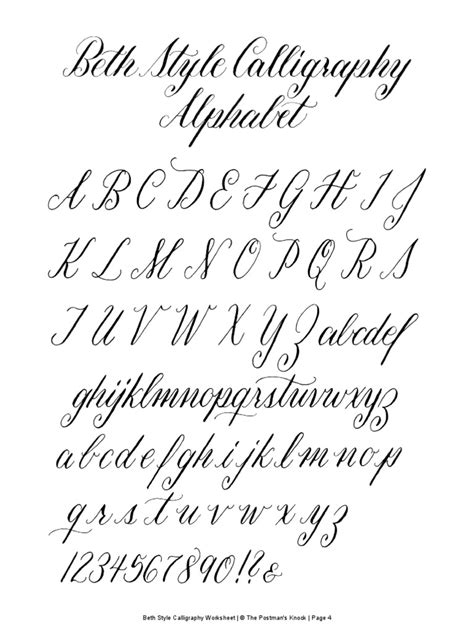 Beth Style Calligraphy
Alphabet
A B C D E F G H I J
K L M N O P Q R S
T U V W X Y Z abcdef
ghijklmnopqrstuvwxyz
a b c d e f g h i j k l m n o p
q r s t u v w x y z
1234567890!?&
Beth Style Calligraphy Worksheet | © The Postman's Knock | Page 4